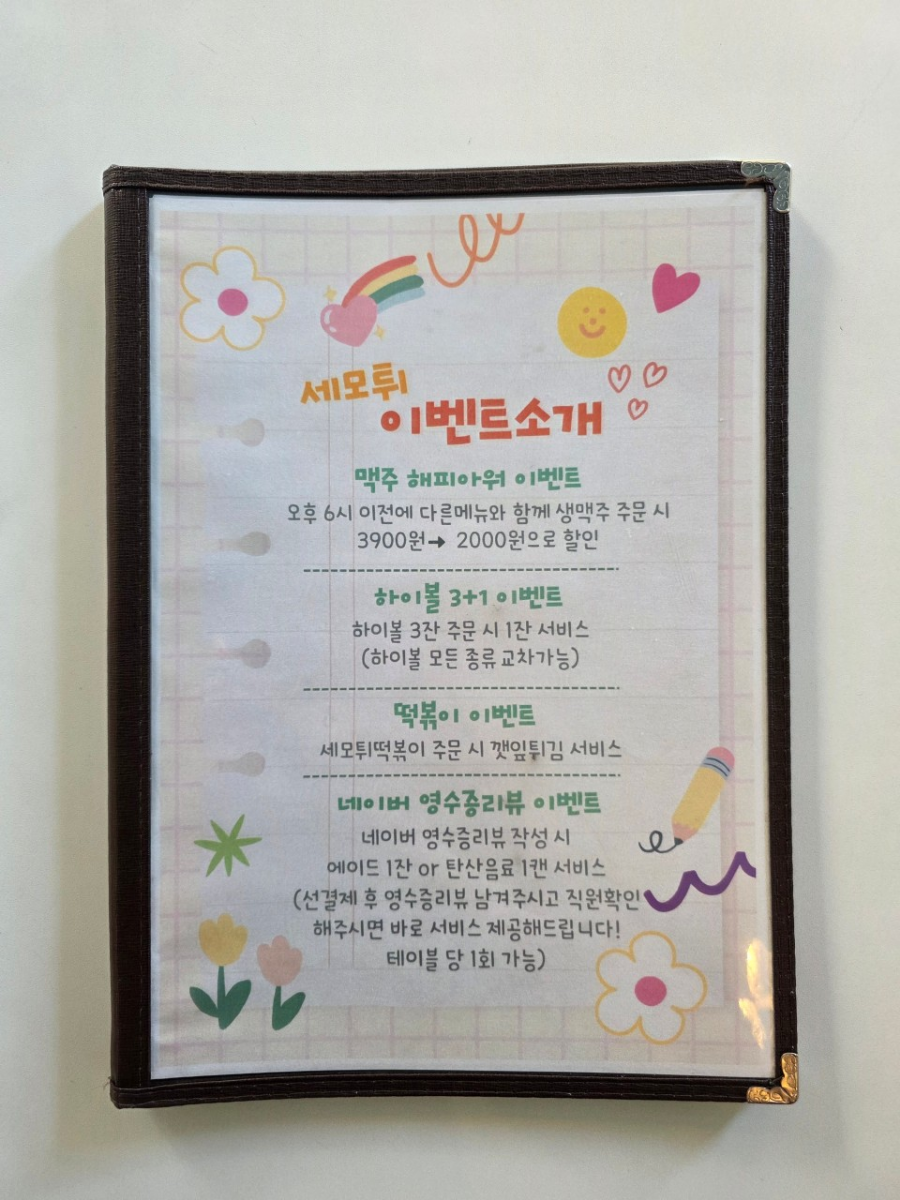 세모튀
이벤트소개
맥주 해피아워 이벤트
오후 6시 이전에 다른메뉴와 함께 생맥주 주문 시
3900원→ 2000원으로 할인
하이볼 3+1 이벤트
하이볼 3잔 주문 시 1잔 서비스
(하이볼 모든 종류 교차가능)
떡볶이 이벤트
세모튀떡볶이 주문 시 깻잎튀김 서비스
네이버 영수증리뷰 이벤트
네이버 영수증리뷰 작성 시
에이드 1잔 or 탄산음료 1캔 서비스
(선결제 후 영수증리뷰 남겨주시고 직원확인
해주시면 바로 서비스 제공해드립니다!
테이블 당 1회 가능)